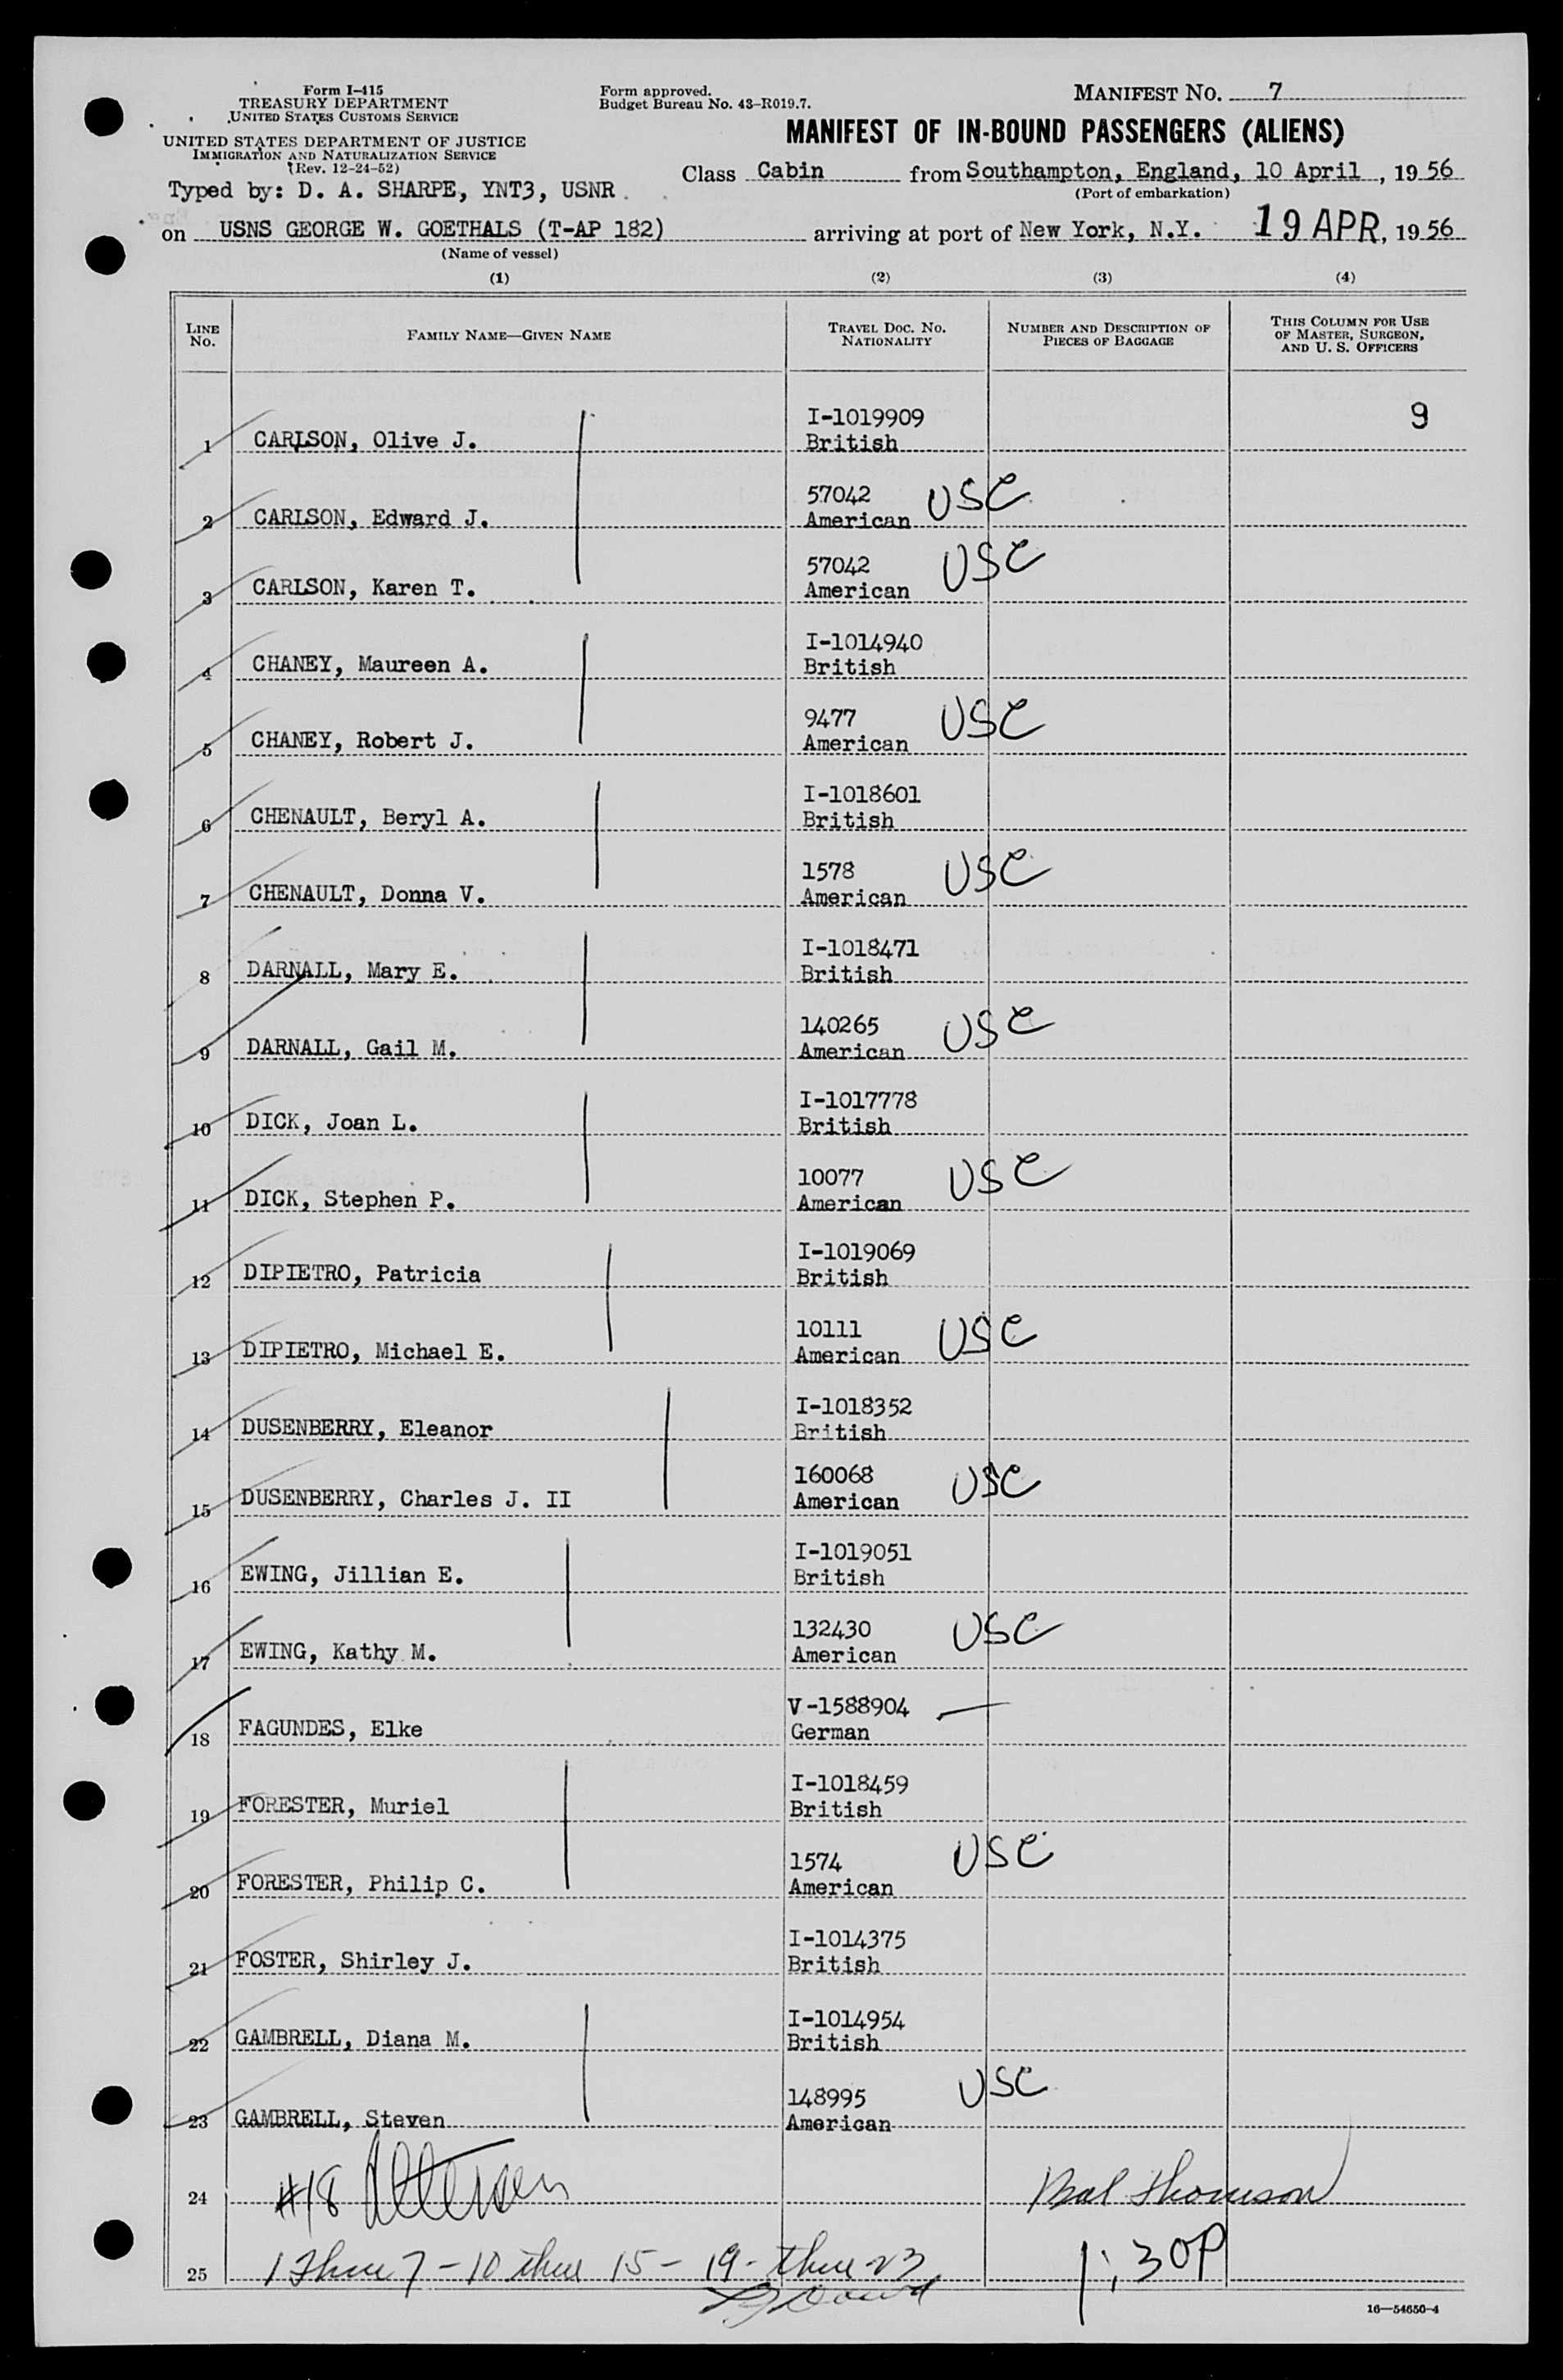 Form I-415
TREASURY DEPARTMENT
UNITED STATES CUSTOMS SERVICE
UNITED STATES DEPARTMENT OF JUSTICE
IMMIGRATION AND NATURALIZATION SERVICE
(Rev. 12-24-52)
Typed by: D. A. SHARPE, YNT3, USNR
Form approved.
Budget Bureau No. 43-R019.7.
MANIFEST NO. 7
MANIFEST OF IN-BOUND PASSENGERS (ALIENS)
Class Cabin from Southampton, England, 10 April, 1956
(Port of embarkation)
on USNS GEORGE W. GOETHALS (T-AP 182) arriving at port of New York, N.Y. 19 APR, 1956
(Name of vessel)
(1) (2) (3) (4)
LINE No. FAMILY NAME—GIVEN NAME TRAVEL DOC. NO. NATIONALITY NUMBER AND DESCRIPTION OF PIECES OF BAGGAGE THIS COLUMN FOR USE OF MASTER, SURGEON, AND U. S. OFFICERS
1 CARLSON, Olive J. I-1019909 British 9
2 CARLSON, Edward J. 57042 American USC
3 CARLSON, Karen T. 57042 American USC
4 CHANEY, Maureen A. I-1014940 British
5 CHANEY, Robert J. 9477 American USC
6 CHENAULT, Beryl A. I-1018601 British
7 CHENAULT, Donna V. 1578 American USC
8 DARNALL, Mary E. I-1018471 British
9 DARNALL, Gail M. 140265 American USC
10 DICK, Joan L. I-1017778 British
11 DICK, Stephen P. 10077 American USC
12 DIPIETRO, Patricia I-1019069 British
13 DIPIETRO, Michael E. 10111 American USC
14 DUSENBERRY, Eleanor I-1018352 British
15 DUSENBERRY, Charles J. II 160068 American USC
16 EWING, Jillian E. I-1019051 British
17 EWING, Kathy M. 132430 American USC
18 FAGUNDES, Elke V-1588904 German
19 FORESTER, Muriel I-1018459 British
20 FORESTER, Philip C. 1574 American USC
21 FOSTER, Shirley J. I-1014375 British
22 GAMBRELL, Diana M. I-1014954 British
23 GAMBRELL, Steven 148995 American USC
24 #18 Thomson
25 1 thru 7 - 10 thru 15 - 19 - thru 23 1:30P
16—54650-4